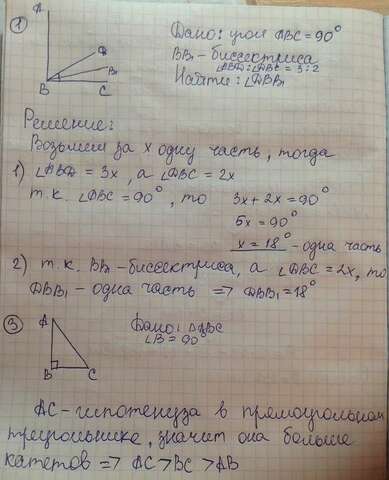 1
A
D
B₁
B
C
Дано: угол ABC = 90°
BB₁ - биссектриса
∠ABD : ∠DBC = 3 : 2
Найти: ∠DBB₁
Решение:
Возьмем за x одну часть, тогда
1) ∠ABD = 3x, а ∠DBC = 2x
т.к. ∠ABC = 90°, то 3x + 2x = 90°
5x = 90°
x = 18° - одна часть
2) т.к. BB₁ - биссектриса, а ∠DBC = 2x, то
DBB₁ - одна часть ⇒ DBB₁ = 18°
3
A
B
C
Дано: ΔABC
∠B = 90°
AC - гипотенуза в прямоугольном
треугольнике, значит она больше
катетов ⇒ AC > BC > AB